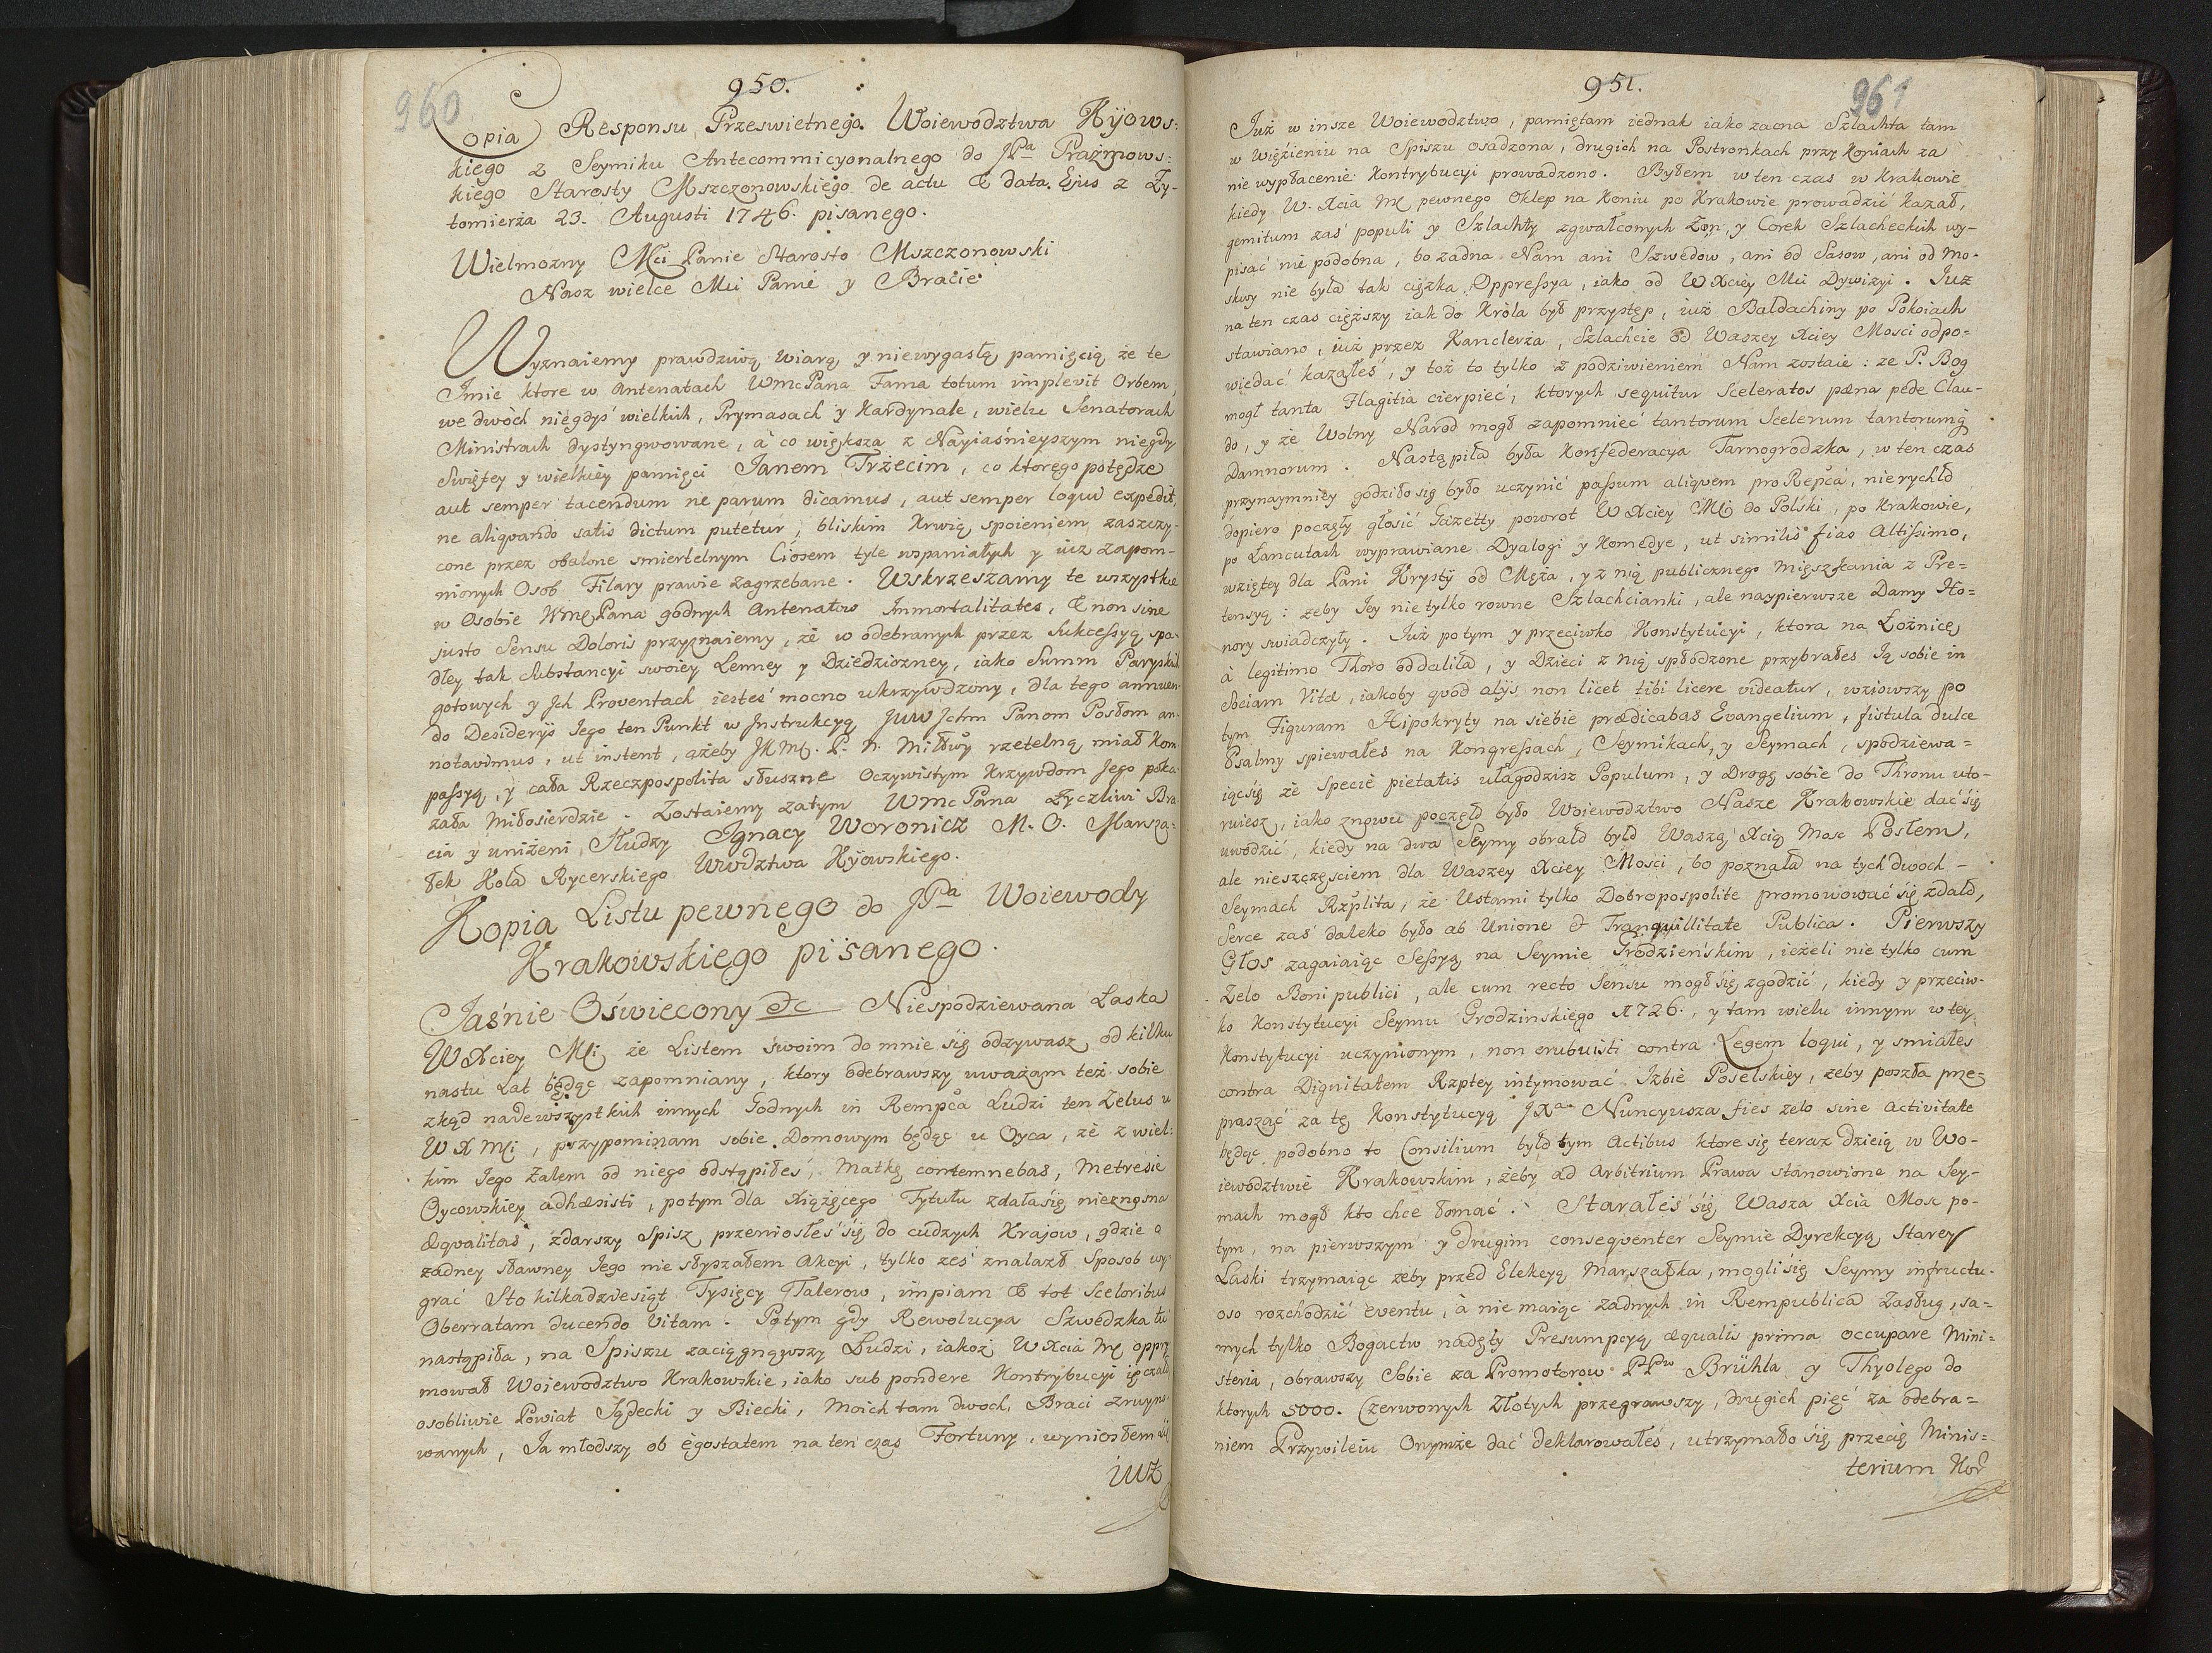 960
950.
Copia Responsu Przeswietnego Woiewodztwa Kÿows:
kiego z Seymiku Antecommicyonalnego do JPa Prażmows:
kiego Starosty Mszczonowskiego de actu & data Ejus z Ży-
tomierża 23. Augusti 1746. pisanego.
Wielmozny Mci Panie Starosto Mszczonowski
Nasz wielce Mci Panie y Bracie
Wyznaiemy prawdziwą wiarą y niewygasłą pamięcią że te
Jmie ktore w Antenatach WmcPana Fama totum implevit Orbem,
we dwóch niegdyś wielkich, Prymasach y Kardynale, wielu Senatorach
Ministrach dystyngwowane, a co większa z Nayiaśnieyszym niegdy
Swiętey y wielkiey pamięci Janem Trżecim, co ktorego potędze
aut semper tacendum ne parum dicamus, aut semper loqui expedit,
ne aliqvando satis dictum putetur, bliskim Krwią spoieniem zaszczy-
cone przez obalone smiertelnym Ciosem tyle wspaniałych y iuz zapom-
nionych Osob Filary prawie zagrzebane. Wskrzeszamy te wszystkie
w Osobie WmcPana godnych Antenatow Immortalitates, & non sine
justo Sensu Doloris przyznaiemy, że w odebranych przez Sukcessyą spa-
dłey tak Substancyi swoiey Lenney y Dziedziczney, iako Summ Paryskich
gotowych y Jch Proventach iesteś mocno ukrzywdzony, dla tego annuen-
do Desideryo Jego ten Punkt w Jnstrukcyą JWW Jchm Panom Posłom an-
notavimus, ut instent, ażeby JKMć. P. N. Miłłwy rzetelną miał Kom
passyą, y cała Rzeczpospolita słuszne Oczywistym Krzywdom Jego poka-
zała Miłosierdzie. Zostaiemy zatym WmcPana Zyczliwi Bra-
cia y uniżeni Słudzy Ignacy Woronicz M. O. Marsza-
łek Koła Rycerskiego Wwdztwa Kÿowskiego.
Kopia Listu pewnego do JPa Woiewody
Krakowskiego pisanego.
Jaśnie Oświecony &c Niespodziewana Łaska
WXciey Mci że Listem swoim do mnie się odzywasz od kilku
nastu Lat będąc zapomniany, ktory odebrawszy uważam też sobie
zkąd nadewszystkich innych Godnych in Rempca Ludzi ten Zelus u
WXMci, przypominam sobie Domowym będąc u Oyca, że z wiel:
kim Jego Żalem od niego odstąpiłeś, Matkę contemnebas, Metresie
Oycowskiey adhæsisti, potym dla Xiążęcego Tytułu zdała się nieznosna
æqvalitas, zdarszy Spisz przeniosłeś się do cudzych Kraiow, gdzie o
zadney sławney Jego nie słyszałem Akcyi, tylko ześ znalazł Sposob wy-
grać Sto kilkadziesiąt Tysięcy Talerow, impiam & tot Sceloribus
Oberratam ducendo Vitam. Potym gdy Rewolucya Szwedzka tu
nastąpiła, na Spiszu zaciągnąwszy Ludzi, iakoż WXcia Mć oppry
mował Woiewodztwo Krakowskie, iako sub pondere Kontrybucyi ięczało
osobliwie Powiat Sądecki y Biecki, Moich tam dwoch Braci zruyno
wanych, Ja młodszy ob egostatem na ten czas Fortuny, wyniosłem się
iuż
951.
961
Już w insze Woiewodztwo, pamiętam iednak iako zacna Szlachta tam
w Więzieniu na Spiszu osadzona, drugich na Postronkach przy Koniach za
nie wypłacenie Kontrybucyi prowadzono. Byłem w ten czas w Krakowie
kiedy W. Xcia Mć pewnego Oklep na Koniu po Krakowie prowadzić kazał,
gemitum zaś populi y Szlachty zgwałconych Żon, y Corek Szlacheckich wy-
pisać nie podobna, bo zadna Nam ani Szwedow, ani od Sasow, ani od Mo-
skwy nie była tak ciężka Oppressya, iako od WXciey Mci Dywizyi. Już
na ten czas cięższy iak do Króla był przystęp, iuż Baldachiny po Pokoiach
stawiano, iuż przez Kanclerża, Szlachcie od Waszey Xciey Mosci odpo-
wiedać kazałeś, y toż to tylko z podziwieniem Nam zostaie: ze P. Bog
mogł tanta Flagitia cierpieć, ktorych seqvitur Sceleratos pæna pede Clau-
do, y że Wolny Narod mogł zapomnieć tantorum Scelerum tantorumq
Damnorum. Nastąpiła była Konfederacya Tarnogrodzka, w ten czas
przynaymniey godziło się było uczynić passum aliqvem pro Repca, nierychło
dopiero poczęły głosić Gazetty powrot WXciey Mci do Polski, po Krakowie,
po Łancutach wyprawiane Dyalogi y Komedye, ut similis fias Altissimo,
wziętey dla Pani Krysty od Męża, y z nią publicznego mięszkania z Pre-
tensyą: zeby Jey nie tylko rowne Szlachcianki, ale naypierwsze Damy Ho-
nory swiadczyły. Już po tym y przeciwko Konstytucyi, ktora na Łożnicę
à legitimo Thoro oddaliła, y Dzieci z nią spłodzone przybrałes Ją sobie in
Sociam Vitæ, iakoby qvod alÿs non licet tibi licere videatur, wziowszy po
tym Figuram Hipokryty na siebie prædicabas Evangelium, fistula dulce
Psalmy spiewałes na Kongressach, Seymikach, y Seymach, spodziewa-
iąc się że Specie pietatis ułagodzisz Populum, y Drogę sobie do Thronu uto-
ruiesz, iako znowu poczęło było Woiewodztwo Nasze Krakowskie dać się
uwodzić, kiedy na dwa Seymy obrało było Waszą Xcią Mosc Posłem,
ale nieszczęsciem dla Waszey Xciey Mosci, bo poznała na tych dwoch -
Seymach Rzplita, że Ustami tylko Dobropospolite promowować się zdało,
Serce zaś daleko było ab Unione & Tranquillitate Publica. Pierwszy
Głos zagaiaiąc Sessyą na Seymie Grodzieńskim, ieżeli nie tylko cum
Zelo Boni publici, ale cum recto Sensu mogł się zgodzić, kiedy y przeciw-
ko Konstytucyi Seymu Grodzinskiego A 1726., y tam wielu innym w tey
Konstytucyi uczynionym, non erubuisti contra Legem loqui, y smiałes
contra Dignitatem Rzptey intymować Izbie Poselskiey, żeby poszła prze-
praszać za tę Konstytucyą JXa Nuncyusza fies zelo sine activitate
będąc podobno to Consilium było tym Actibus ktore się teraz dzieią w Wo-
iewodztwie Krakowskim, żeby ad Arbitrium Prawa stanowione na Sey-
mach mogł kto chce łomać. Starałeś się Wasza Xcia Mosc po-
tym, na pierwszym y drugim conseqventer Seymie Dyrekcyą Starey
Laski trzymaiąc zeby przed Elekcyą Marszałka, mogli się Seymy infructu-
oso rozchodzić eventu, à nie maiąc żadnych in Rempublica Zasług, sa-
mych tylko Bogactw nadęty Presumpcyą æqualis prima occupare Mini-
steria, obrawszy Sobie za Promotorow PPow Brühla y Thyolego do
ktorych 5000. Czerwonych Złotych przegrawszy, drugich pięć za odebra-
niem Przywileiu Onymże dać deklarowałeś, utrzymało się przecię Minis-
terium Hor